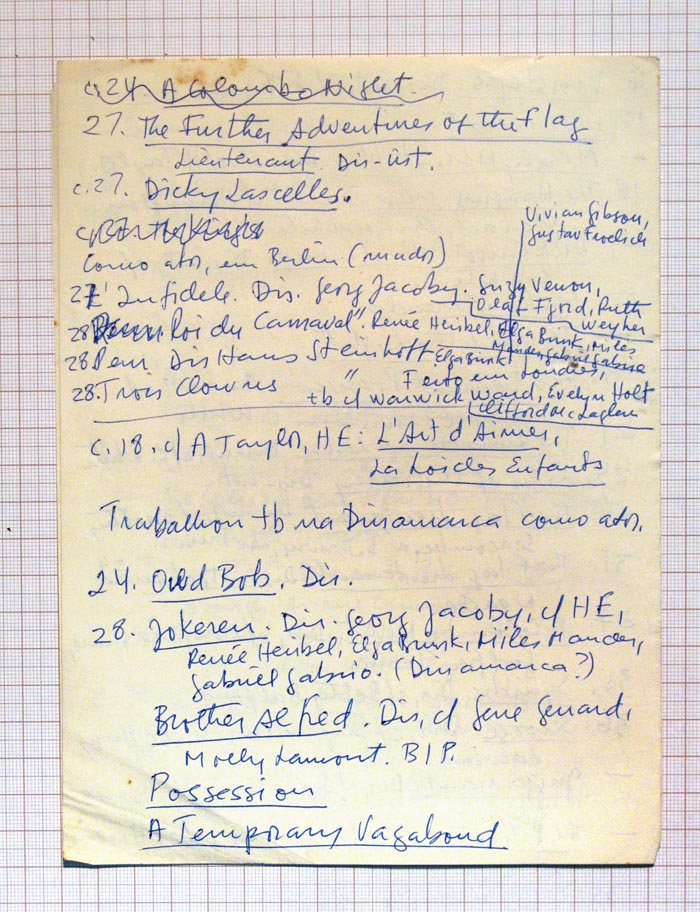 c.24. A Colombo Night.
27. The Further Adventures of the Flag
Lieutenant. Dis-üst.
c.27. Dicky Lascelles.
Como ator, em Berlin (mudos)
Vivian Gibson,
Gustav Froelich
27 L'Infidele. Dir. Georg Jacoby. Suzy Vernon,
Olaf Fjord, Ruth
Weyher
28 Roi du Carnaval". Renée Heribel, Elga Brink, Miles
Mander, Gabriel Gabrio
28 Dir Hans Steinhoff Elga Brink
28. Trois Clowns " Feito em Londres,
tb c/ Warwick Ward, Evelyn Holt
Clifford McLaglen
c.18. c/ A Taylor, HE: L'Art d'Aimer,
La Loi des Enfants
Trabalhou tb na Dinamarca como ator.
24. Owd Bob. Dir.
28. Jokeren. Dir. Georg Jacoby, c/ HE,
Renée Heribel, Elga Brink, Miles Mander,
Gabriel Gabrio. (Dinamarca?)
Brother Alfred. Dir, c/ Gene Gerrard,
Molly Lamont. BIP.
Possession
A Temporary Vagabond